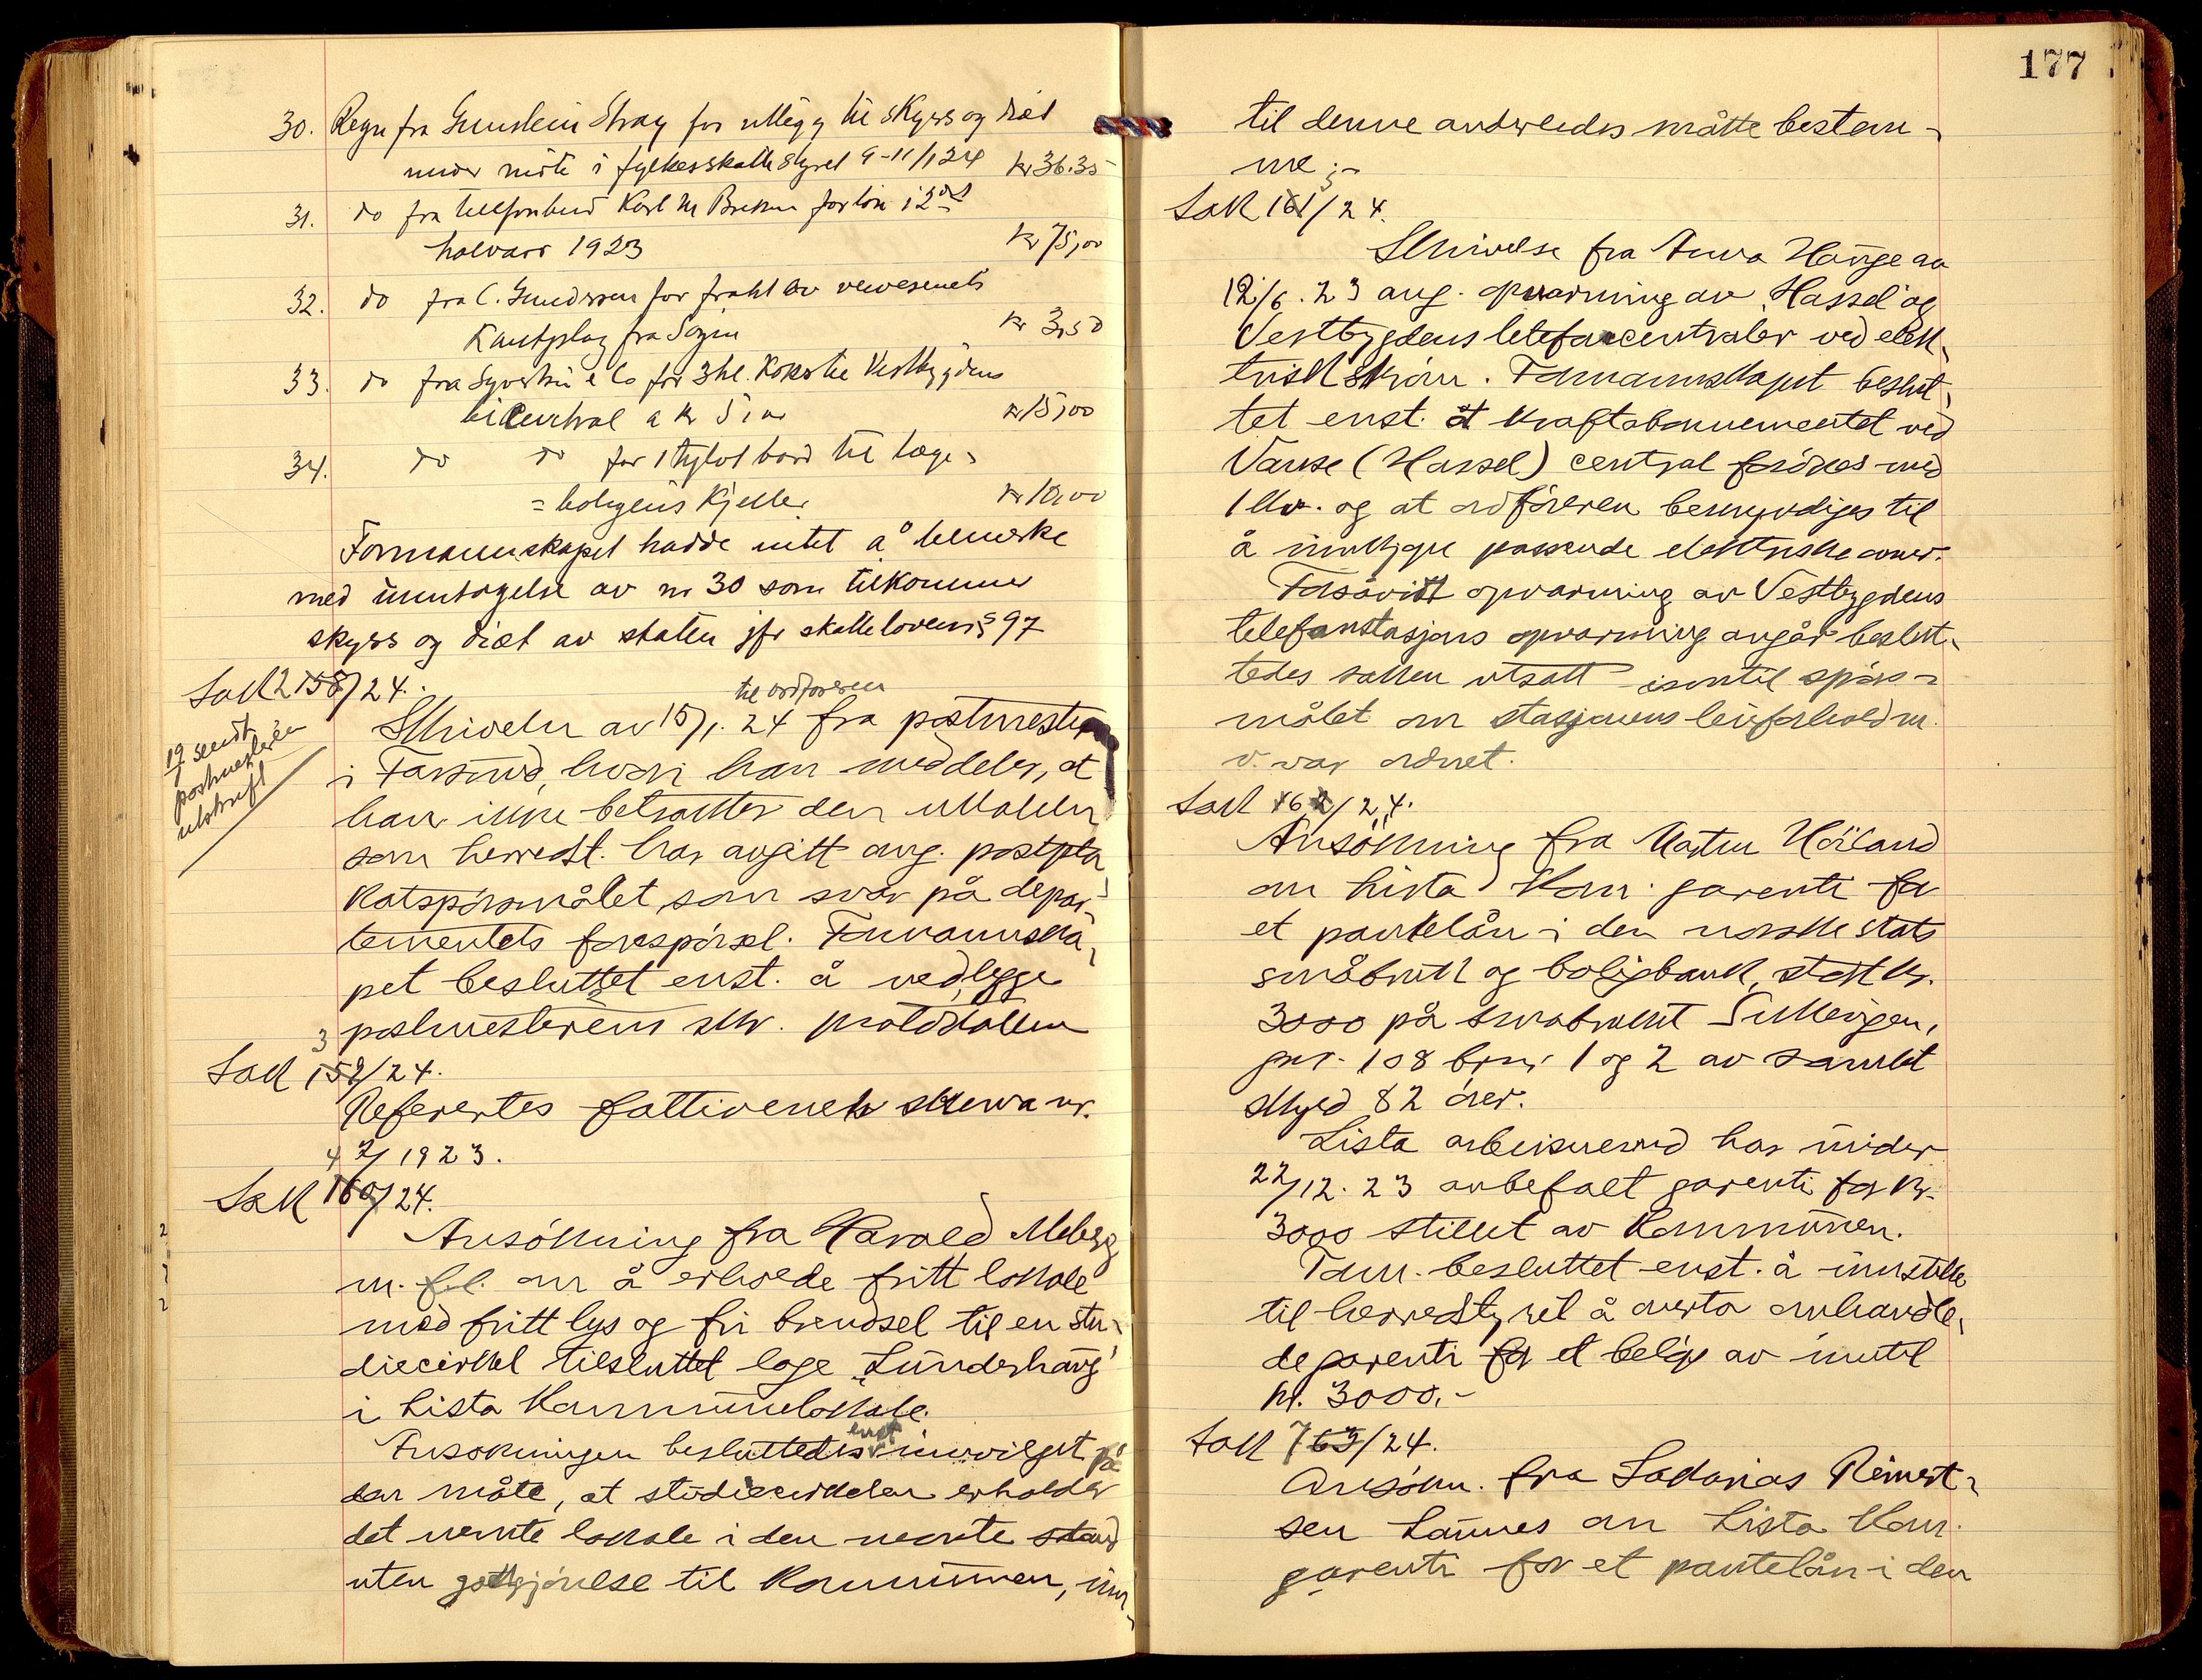 30. Regn fra Gunstein Stray for utlegg til skyss og diæt
under möte i fylkesskattestyret 9-11/1 24 kr 36.35
31. do fra telefonbud Karl M for lön i 2det
halvaar 1923 kr 75,00
32. do fra C. Gundersen for frakt av veivesenets
fra kr 3,50
33. do fra & Co for 3 hl. koks til Vestbygdens
central a kr 5,00 kr 15,00
34. do do for 1 bord til læge-
=boligens kjeller kr 10,00
Formannskapet hadde intet å bemerke
med unntagelse av nr 30 som tilkommer
skyss og diæt av staten jfr skattelovens § 97
Sak 2 158/24.
til ordföreren
Skrivelse av 15/1. 24 fra postmesteren
19/1 sendt
postmesteren
utskrift
i Farsund, hvori han meddeler, at
han ikke betrakter den uttalelse
som herredst. har avgitt ang. postpla-
katspörsmålet, som svar på depar-
tementets forespörsel. Formannska-
pet besluttet enst. å vedlegge
postmesterens skr. protokollen
3
Sak 159/24.
Referertes fattivenets skema nr.
2/1923.
4
Sak 160/24.
Ansökning fra Harald Meberg
m. fl. om å erholde fritt lokale
med fritt lys og fri brendsel til en stu-
diecirkel tilsluttet loge „Lundshaug"
i Lista Kommunelokale.
enst
Ansökningen besluttedes innvilget på
den måte, at studiecirkelen erholder
det nevnte lokale i den nevnte stand
uten godtgjörelse til kommunen, inn-
177
til denne anderledes måtte bestem-
me ;-
Sak 161/24.
Skrivelse fra Anna Hauge av
12/6. 23 ang. opvarming av Hassel og
Vestbygdens telefoncentraler ved elek-
trisk ström. Formannskapet beslut-
tet enst. at kraftabonnementet ved
Vanse (Hassel) central forökes med
1 kw. og at ordföreren bemyndiges til
å innkjöpe passende elektriske ovner.
Forsåvitt opvarming av Vestbygdens
telefonstasjons opvarming angår beslut-
tedes saken utsatt inntil spörs-
målet om stasjonens leieforhold m.
v. var ordnet.
Sak 162/24.
Ansökning fra Martin Höiland
om Lista Kom. garanti for
et pantelån i den norske stats
småbruk og boligbank, stort kr.
3000 på småbruket
gnr. 108 brnr 1 og 2 av samlet
skyld 82 örer.
Lista arbeisnemnd har under
22/12. 23 anbefalt garanti for kr.
3000 stillet av Kommunen.
Form. besluttet enst. å innstille
til herredstyret å overta omhandle-
de garanti for et belöp av inntil
kr. 3000.-
Sak 7 163/24.
Ansökn. fra Sakarias Reinert-
sen Launes om Lista Kom.
garanti for et pantelån i den